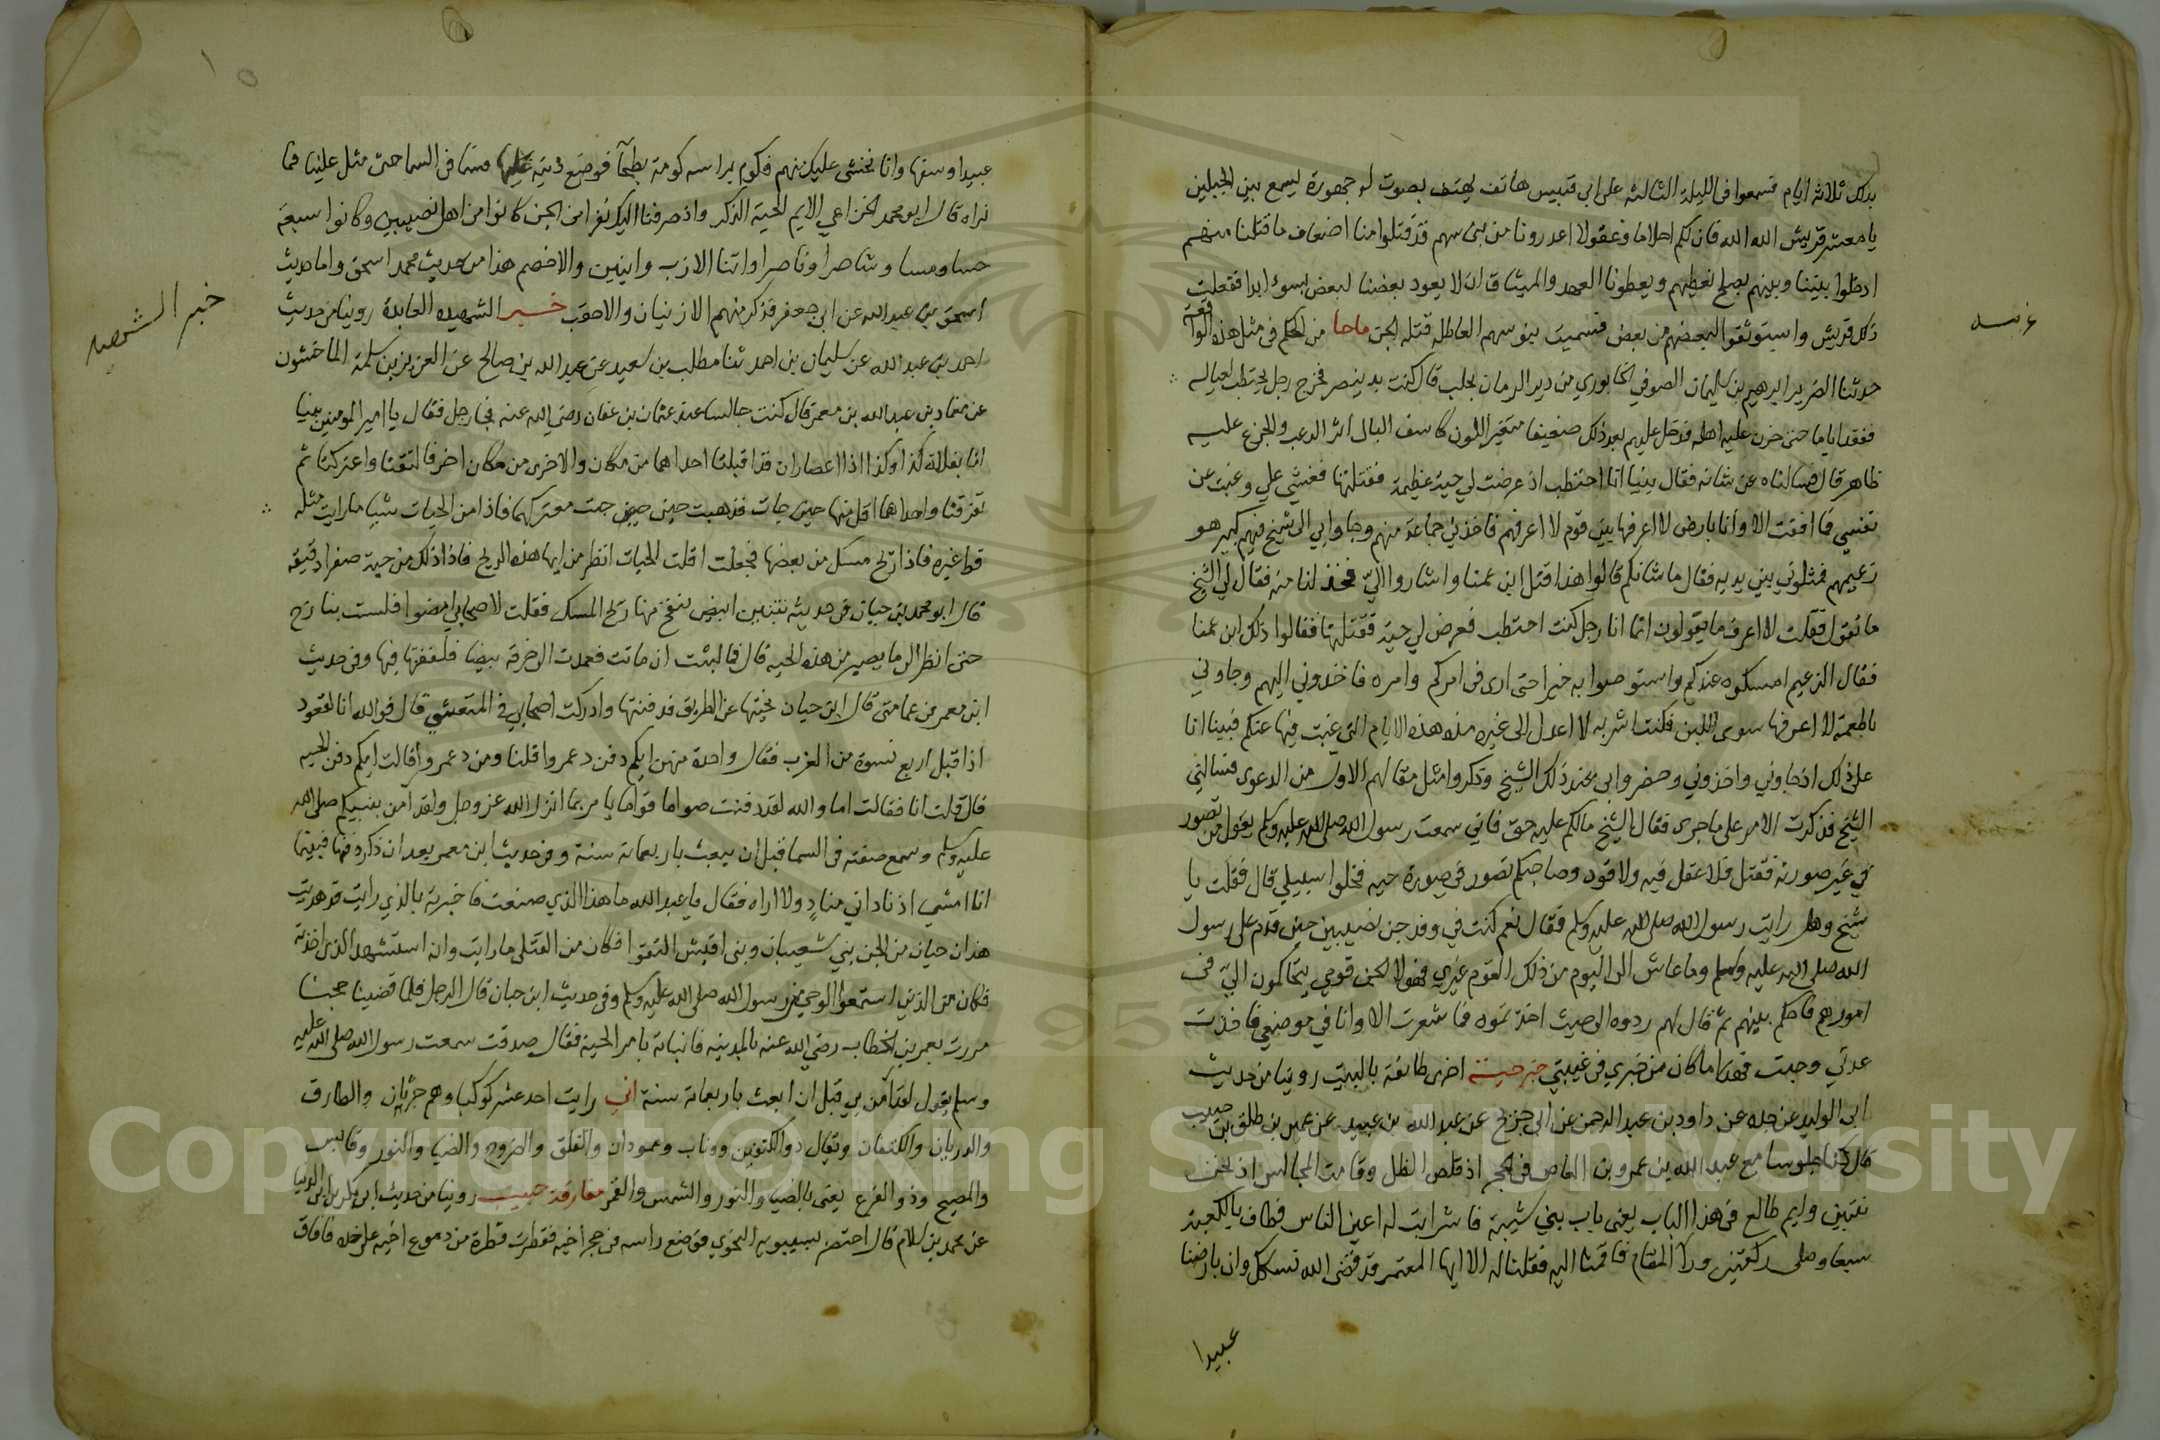 بذلك ثلاثة ايام فسمعوا فى الليلة الثالثه على ابى قبيس هاتف يهتف بصوت له جمهورة يسمع بين الجبلين
يا معشر قريش الله الله فان لكم احلاما وعقولا اعذرونا من بنى سهم فقد قتلوا منا اضعاف ما قتلنا منهم
ادخلوا بيننا وبينهم بصلح نعطيهم ويعطونا العهد والميثاق ان لا يعود بعضنا لبعض بسوء ابدا ففعلت
ذلك قريش واستوثقوا لبعضهم من بعض فسميت بنو سهم العياطلة قتلة الجن ما جا من الحكم فى مثل هذه الواقعة
غريبه
حدثنا الضرير ابرهيم بن سليمان الصوفي الخابوري من دير الرمان بحلب قال كنت بدنيصر فخرج رجل يحتطب لعياله
ففقد اياما حتى حزن عليه اهله فدخل عليهم بعد ذلك ضعيفا متغير اللون كاسف البال اثر الرعب والجزع عليه
ظاهر قال فسالناه عن شانه فقال بينا انا احتطب اذ عرضت لي حية عظيمة فقتلتها فغشي علي وغبت عن
نفسي فما افقت الا وانا بارض لا اعرفها بين قوم لا اعرفهم فاخذني جماعة منهم وجاوا بي الى شيخ فيهم كبير هو
زعيمهم فمثلوني بين يديه فقال ما شانكم قالوا هذا قتل ابن عمنا واشاروا الي فخذ لنا منه فقال لي الشيخ
ما تقول فقلت لا اعرف ما يقولون انما انا رجل كنت احتطب فعرض لي حية فقتلتها فقالوا ذلك ابن عمنا
فقال الزعيم امسكوه عندكم واستوصوا به خيرا حتى ارى فى امركم وامره فاخذوني اليهم وجاوني
باطعمة لا اعرفها سوى اللبن فكنت اشربه لا اعدل الى غيره منذ هذه الايام التى غبت فيها عنكم فبينا انا
على ذلك اذ جاوني واخذوني وحضروا بى عند ذلك الشيخ وذكروا مثل مقالهم الاول من الدعوى فسالني
الشيخ فذكرت الامر على ما جرى فقال الشيخ ما لكم عليه حق فاني سمعت رسول الله صلى الله عليه وسلم يقول من تصور
في غير صورته فقتل فلا عقل فيه ولا قود وصاحبكم تصور في صورة حيه فخلوا سبيلي قال فقلت يا
شيخ وهل رايت رسول الله صلى الله عليه وسلم فقال نعم كنت في وفد جن نصيبين حين قدم على رسول
الله صلى الله عليه وسلم وما عاش الى اليوم من ذلك القوم غيري فهولا الجن قومي يتحاكمون الي فى
امورهم فاحكم بينهم ثم قال لهم ردوه الى حيث اخذتموه فما شعرت الا وانا في موضعي فاخذت
عدتي وجيت فهذا ما كان من خبري فى غيبتي خبر حية اخرى طائفة بالبيت روينا من حديث
ابى الوليد عن جده عن داود بن عبد الرحمن عن ابى جريج عن عبد الله بن عبيد عن عمير بن طلق بن حبيب
قال كنا جلوسا مع عبد الله بن عمرو بن العاص فى الحجر اذ قلص الظل وقامت المجالس اذ نحن
ببريق وايم طالع فى هذا الباب يعنى باب بني شيبة فاشرابت له اعين الناس فطاف بالكعبة
سبعا وصلى ركعتين ورا المقام فقمنا اليه فقلنا له الا ايها المعتمر قد قضى الله نسكك وان بارضنا
عبيدا
١٠
عبيدا وسفها وانا نخشى عليك منهم فكوم براسه كومة بطحآ فوضع ذنبه عليها فسما فى السما حتى مثل علينا فما
نراه قال ابو محمد الخزاعي الايم الحية الذكر واذ صرفنا اليك نفرا من الجن كانوا من اهل نصيبين وكانوا سبعة
حسا ومسا وشاصرا وناصرا واتنا الارب وابنين والاخضم هذا من حديث محمد اسحق واما حديث
اسحق بن عبد الله عن ابي جعفر فذكر منهم الازنيان والاحقب خبر الشهيده العابدة روينا من حديث
احمد بن عبد الله عن سليمان بن احمد ثنا مطلب بن سعيد عن عبد الله بن صالح عن العزيز بن سلمة الماجشون
خبر الشهيده
عن معاذ بن عبد الله بن معمر قال كنت جالسا عند عثمان بن عفان رضى الله عنه فجا رجل فقال يا امير المومنين بينا
انا بفلاة كذا وكذا اذا اعصاران قد اقبلتا احداهما من مكان والاخرى من مكان اخر فالتقتا واعتركتا ثم
تفرقتا واحداهما اقل منها حين جات فذهبت حتى جيت معتركهما فاذا من الحيات شيا ما رايت مثله
قط غيره فاذا ريح مسك من بعضها فجعلت اقلب الحيات انظر من ايها هذه الريح فاذا ذلك من حية صفرا دقيقة
قال ابو محمد بن حيان فى حديثه تتثنى ابيض ينفخ منها ريح المسك فقلت لاصحابي امضوا فلست ببارح
حتى انظر الى ما يصير من هذه الحيه قال فما لبثت ان ماتت فعمدت الى خرقة بيضا فلففتها فيها وفى حديث
ابن معمر من عمامتى قال ابن حيان نحيتها عن الطريق فدفنتها وادركت اصحابي في المتعشى قال فوالله انا لقعود
اذ اقبل اربع نسوة من الغرب فقال واحدة منهن ايكم دفن دعمر واقلنا ومن دعمر وقالت ايكم دفن الحيه
قال قلت انا فقالت اما والله لقد دفنت صواما قواما يامر بما انزل الله عز وجل ولقد آمن بنبيكم صلى الله
عليه وسلم وسمع صفته فى السما قبل ان يبعث باربعماية سنة وفى حديث ابن معمر بعد ان ذكر دفنها فبينما
انا امشي اذ ناداني منادٍ ولا اراه فقال يا عبد الله ما هذا الذي صنعت فاخبرته بالذي رايت قد هديت
هذان حيان من الجن بني شعيبان وبنى اقيش التقوا فكان من القتلى ما رايت وان استشهد الذى اخذته
فكان من الذين استمعوا الوحي من رسول الله صلى الله عليه وسلم وفى حديث ابن حيان قال الرجل فلما قضينا حجنا
مررت بعمر بن الخطاب رضي الله عنه بالمدينه فانباته بامر الحية فقال صدقت سمعت رسول الله صلى الله عليه
وسلم يقول لقد آمن بي قبل ان ابعث باربعماية سنة اني رايت احد عشر كوكبا وهم جرثيان والطارق
والدريان والكتفان ويقال ذو الكتفين ووثاب وعمودان والفلق والضروح والضيا والنور وقابس
والمصبح وذو الفرع يعنى بالضيا والنور والشمس والقمر مفارقة حبيب روينا من حديث ابن بكر بن ابى الدنيا
عن محمد بن سلام قال احتضر سيبويه النحوي فوضع راسه فى حجر اخيه فقطرت قطرة من دموع اخيه على خده فافاق
Copyright © King Saud University
1957